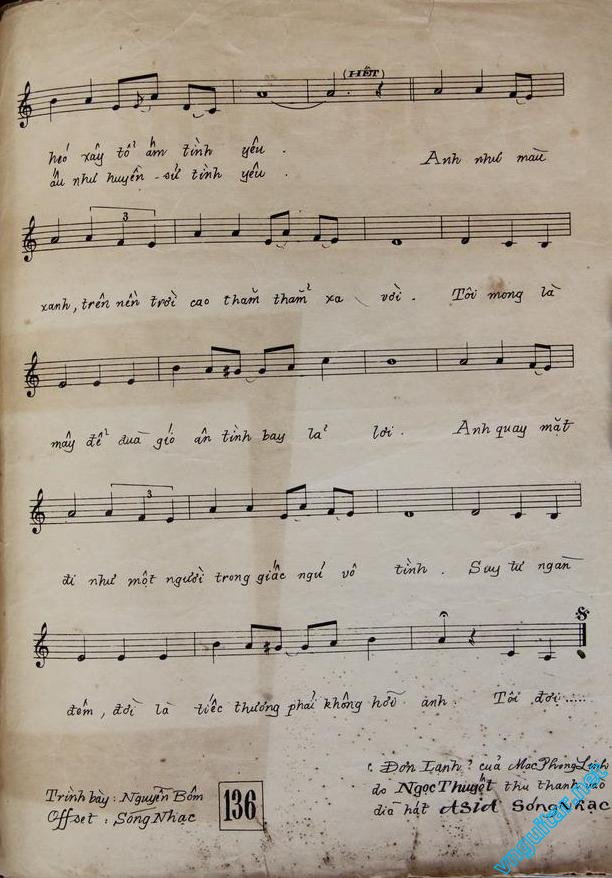 (HẾT)
héo xây tổ ấm tình yêu .
ấu như huyền - sử tình yêu .
Anh như màu
3
xanh, trên nền trời cao thăm thẳm xa vời . Tôi mong là
mây để đùa gió ân tình bay lả lơi . Anh quay mặt
3
đi như một người trong giấc ngủ vô tình . Suy tư ngàn
đêm , đời là tiếc thương phải không hỡi anh . Tôi đợi .....
Trình bày : Nguyễn Bốm
Offset : Sóng Nhạc
136
" Đơn Lạnh " của Mạc Phong Linh
do Ngọc Thuyết thu thanh vào
dĩa hát ASIA Sóng Nhạc
vnguitar.net